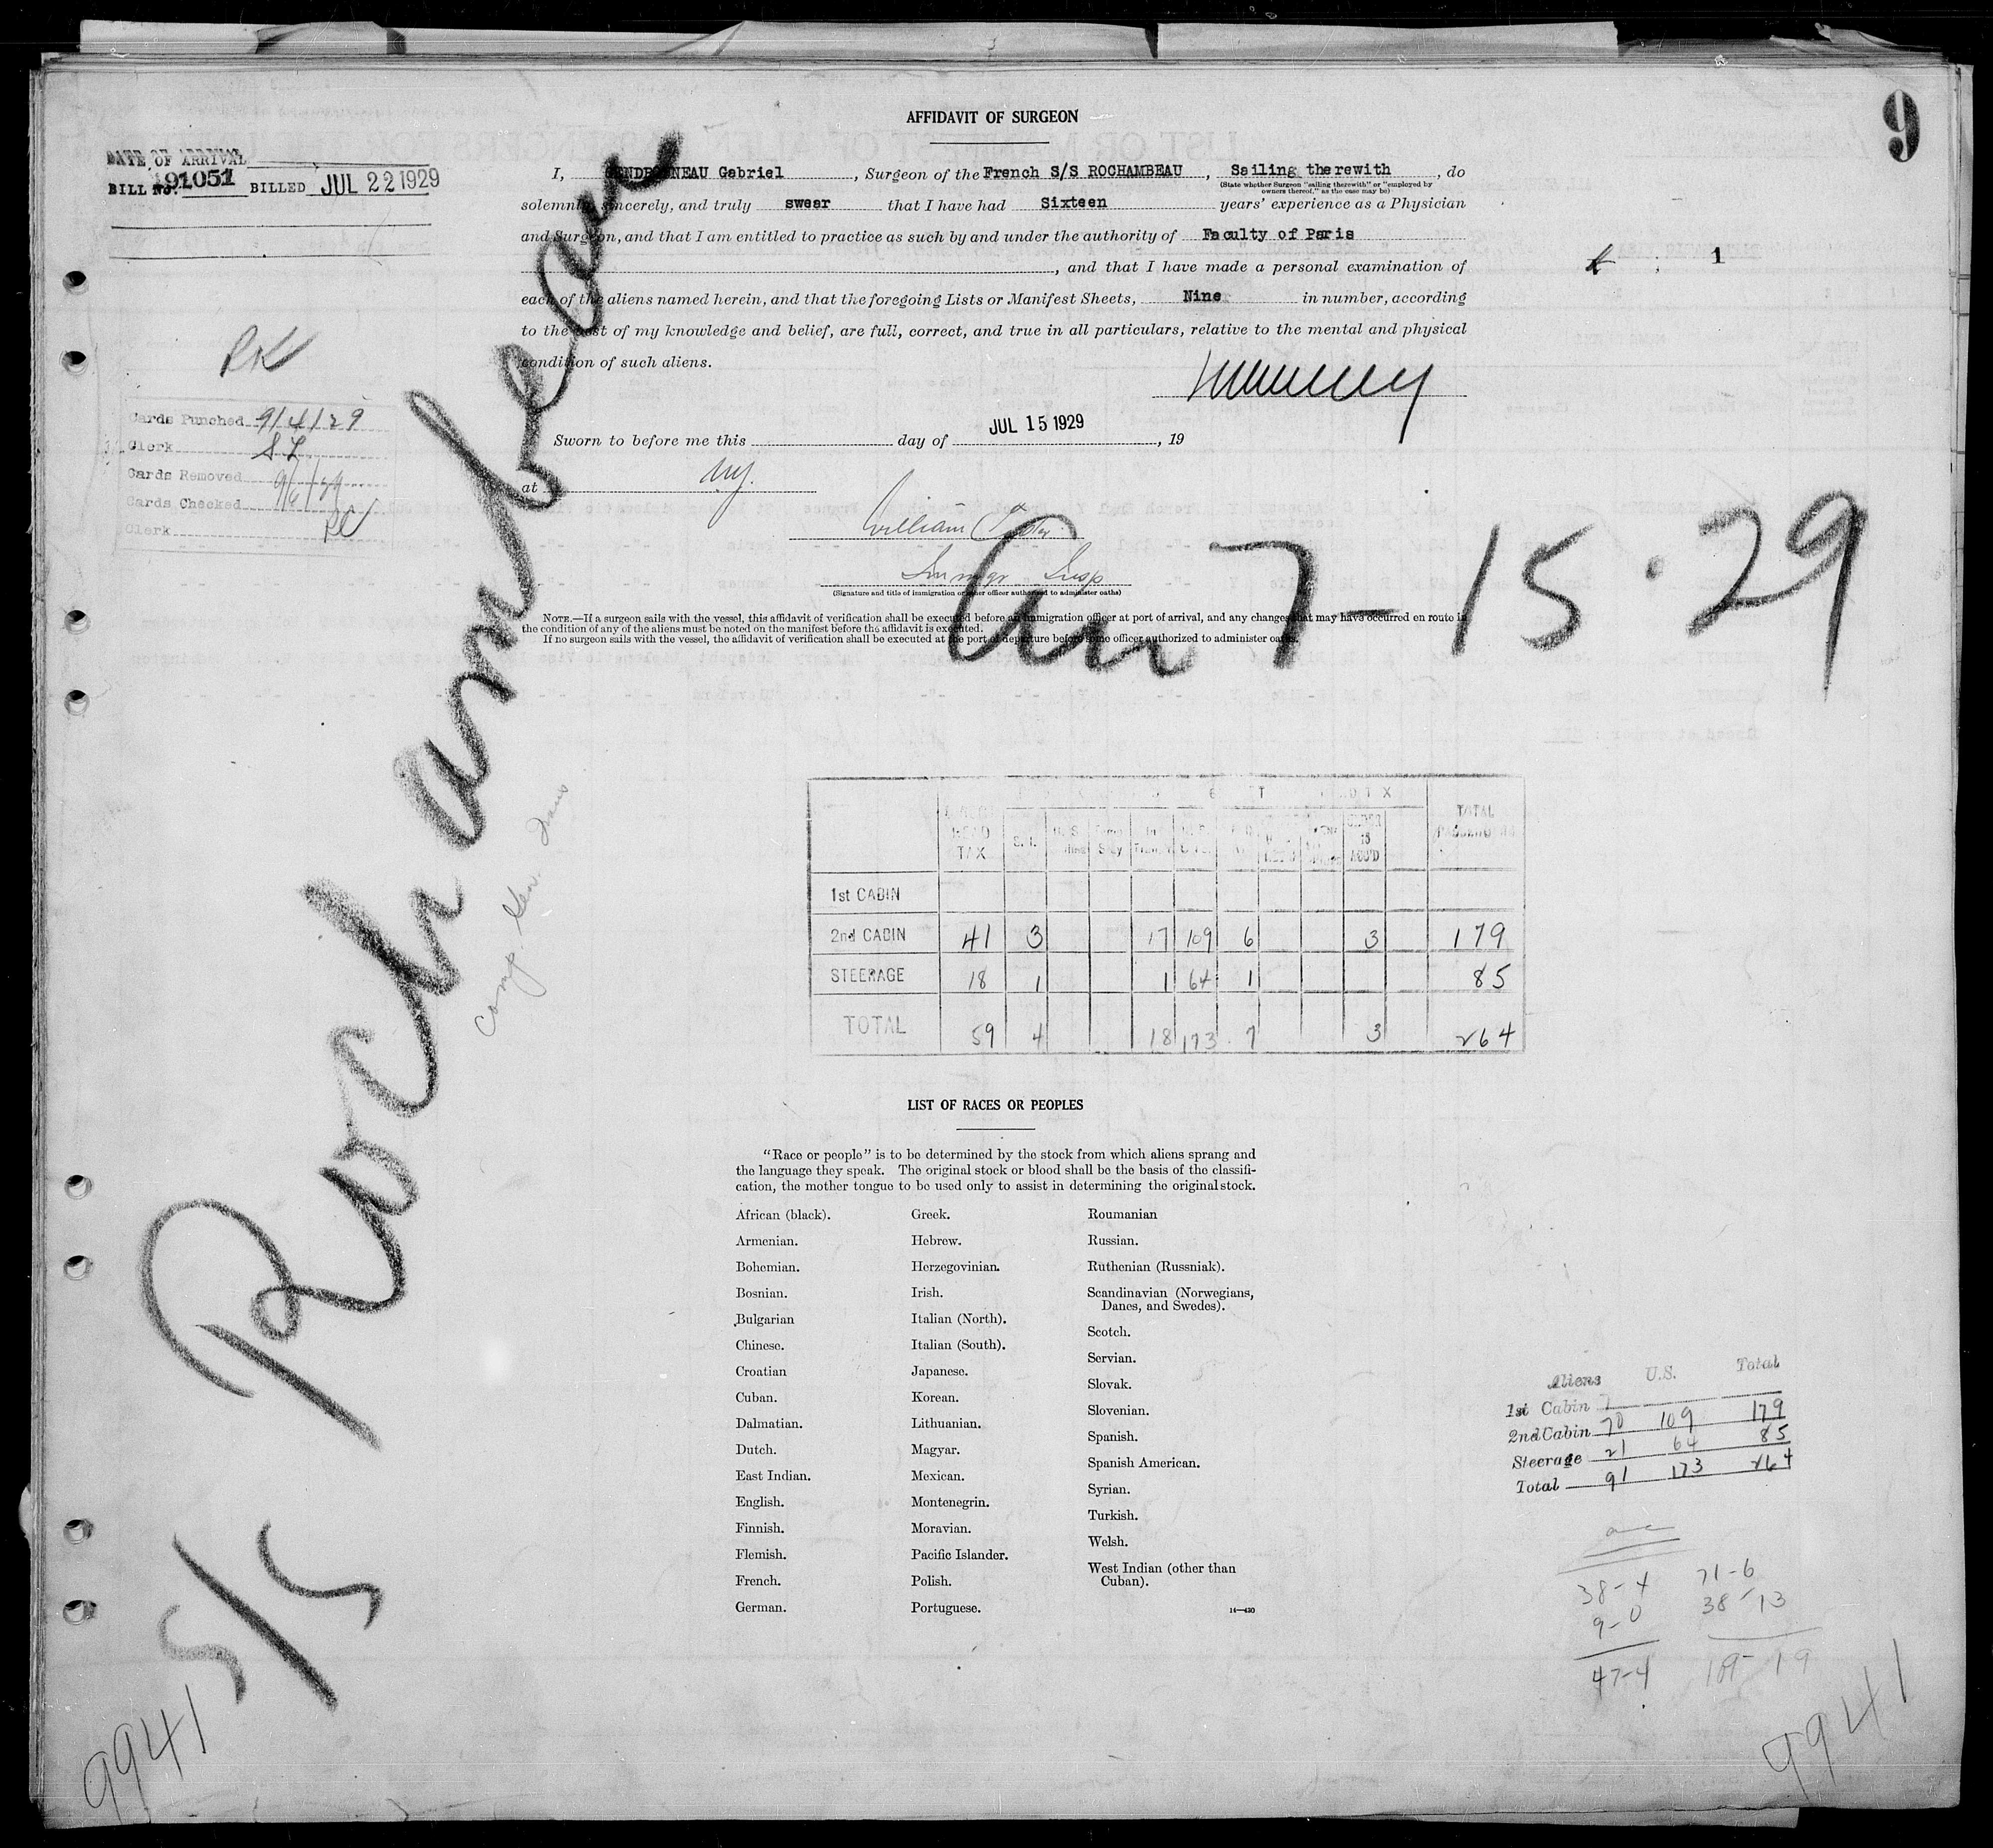 9
AFFIDAVIT OF SURGEON
DATE OF ARRIVAL
BILL No. 91051 BILLED JUL 22 1929
I, Gabriel, Surgeon of the French S/S ROCHAMBEAU, Sailing therewith, do
(State whether Surgeon "sailing therewith" or "employed by
owners thereof," as the case may be)
solemnly, sincerely, and truly swear that I have had Sixteen years' experience as a Physician
and Surgeon, and that I am entitled to practice as such by and under the authority of Faculty of Paris
, and that I have made a personal examination of
1
each of the aliens named herein, and that the foregoing Lists or Manifest Sheets, Nine in number, according
to the best of my knowledge and belief, are full, correct, and true in all particulars, relative to the mental and physical
condition of such aliens.
RK
Cards Punched 9/4/29
Clerk SL
Cards Removed
Cards Checked 9/6/29
Clerk RK
Sworn to before me this day of JUL 15 1929, 19
at NY.
William
Immigr Insp
(Signature and title of immigration or other officer authorized to administer oaths)
NOTE.—If a surgeon sails with the vessel, this affidavit of verification shall be executed before an immigration officer at port of arrival, and any changes that may have occurred en route in
the condition of any of the aliens must be noted on the manifest before the affidavit is executed.
If no surgeon sails with the vessel, the affidavit of verification shall be executed at the port of departure before some officer authorized to administer oaths.
Arr 7-15-29
S/S Rochambeau
HEAD TAX S.I. UNDER 16 ACC'D TOTAL
1st CABIN
2nd CABIN 41 3 17 109 6 3 179
STEERAGE 18 1 1 64 1 85
TOTAL 59 4 18 173 7 3 264
LIST OF RACES OR PEOPLES
"Race or people" is to be determined by the stock from which aliens sprang and
the language they speak. The original stock or blood shall be the basis of the classifi-
cation, the mother tongue to be used only to assist in determining the original stock.
African (black).
Armenian.
Bohemian.
Bosnian.
Bulgarian
Chinese.
Croatian
Cuban.
Dalmatian.
Dutch.
East Indian.
English.
Finnish.
Flemish.
French.
German.
Greek.
Hebrew.
Herzegovinian.
Irish.
Italian (North).
Italian (South).
Japanese.
Korean.
Lithuanian.
Magyar.
Mexican.
Montenegrin.
Moravian.
Pacific Islander.
Polish.
Portuguese.
Roumanian
Russian.
Ruthenian (Russniak).
Scandinavian (Norwegians,
Danes, and Swedes).
Scotch.
Servian.
Slovak.
Slovenian.
Spanish.
Spanish American.
Syrian.
Turkish.
Welsh.
West Indian (other than
Cuban).
14—430
Aliens U.S. Total
1st Cabin
2nd Cabin 70 109 179
Steerage 21 64 85
Total 91 173 264
38-4 71-6
9-0 38-13
47-4 109-19
9941
9941